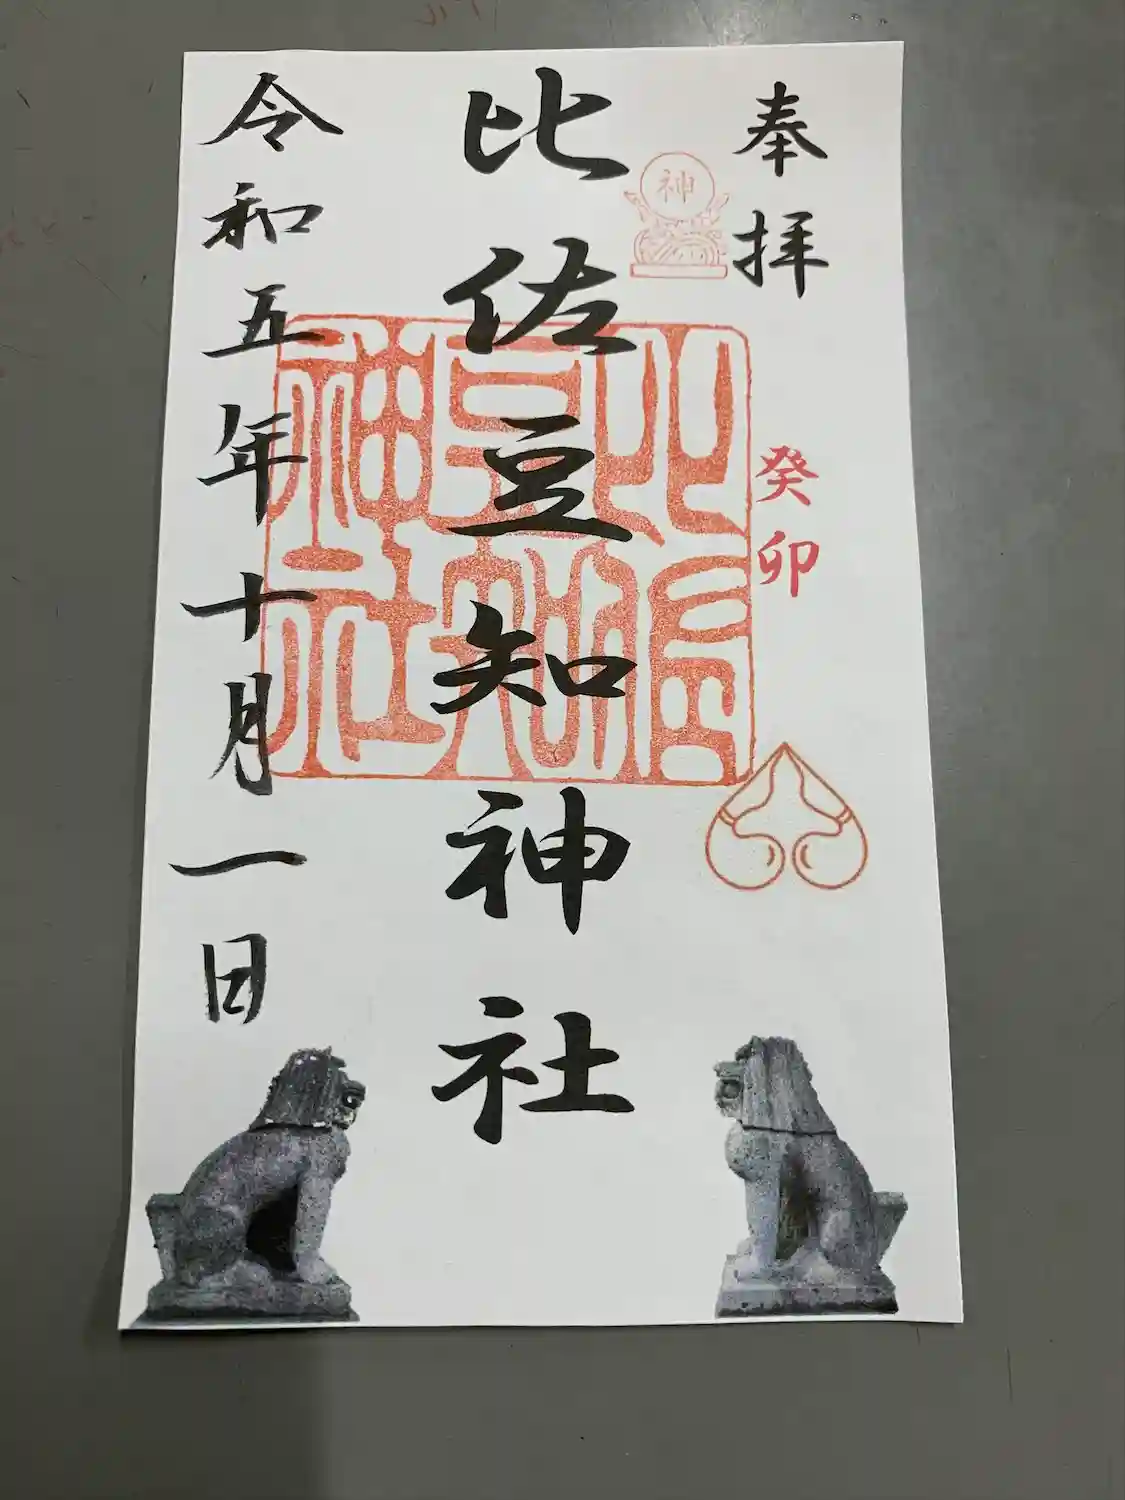 奉拝
神
癸卯
比佐豆知神社
比佐豆知神社
令和五年十月一日